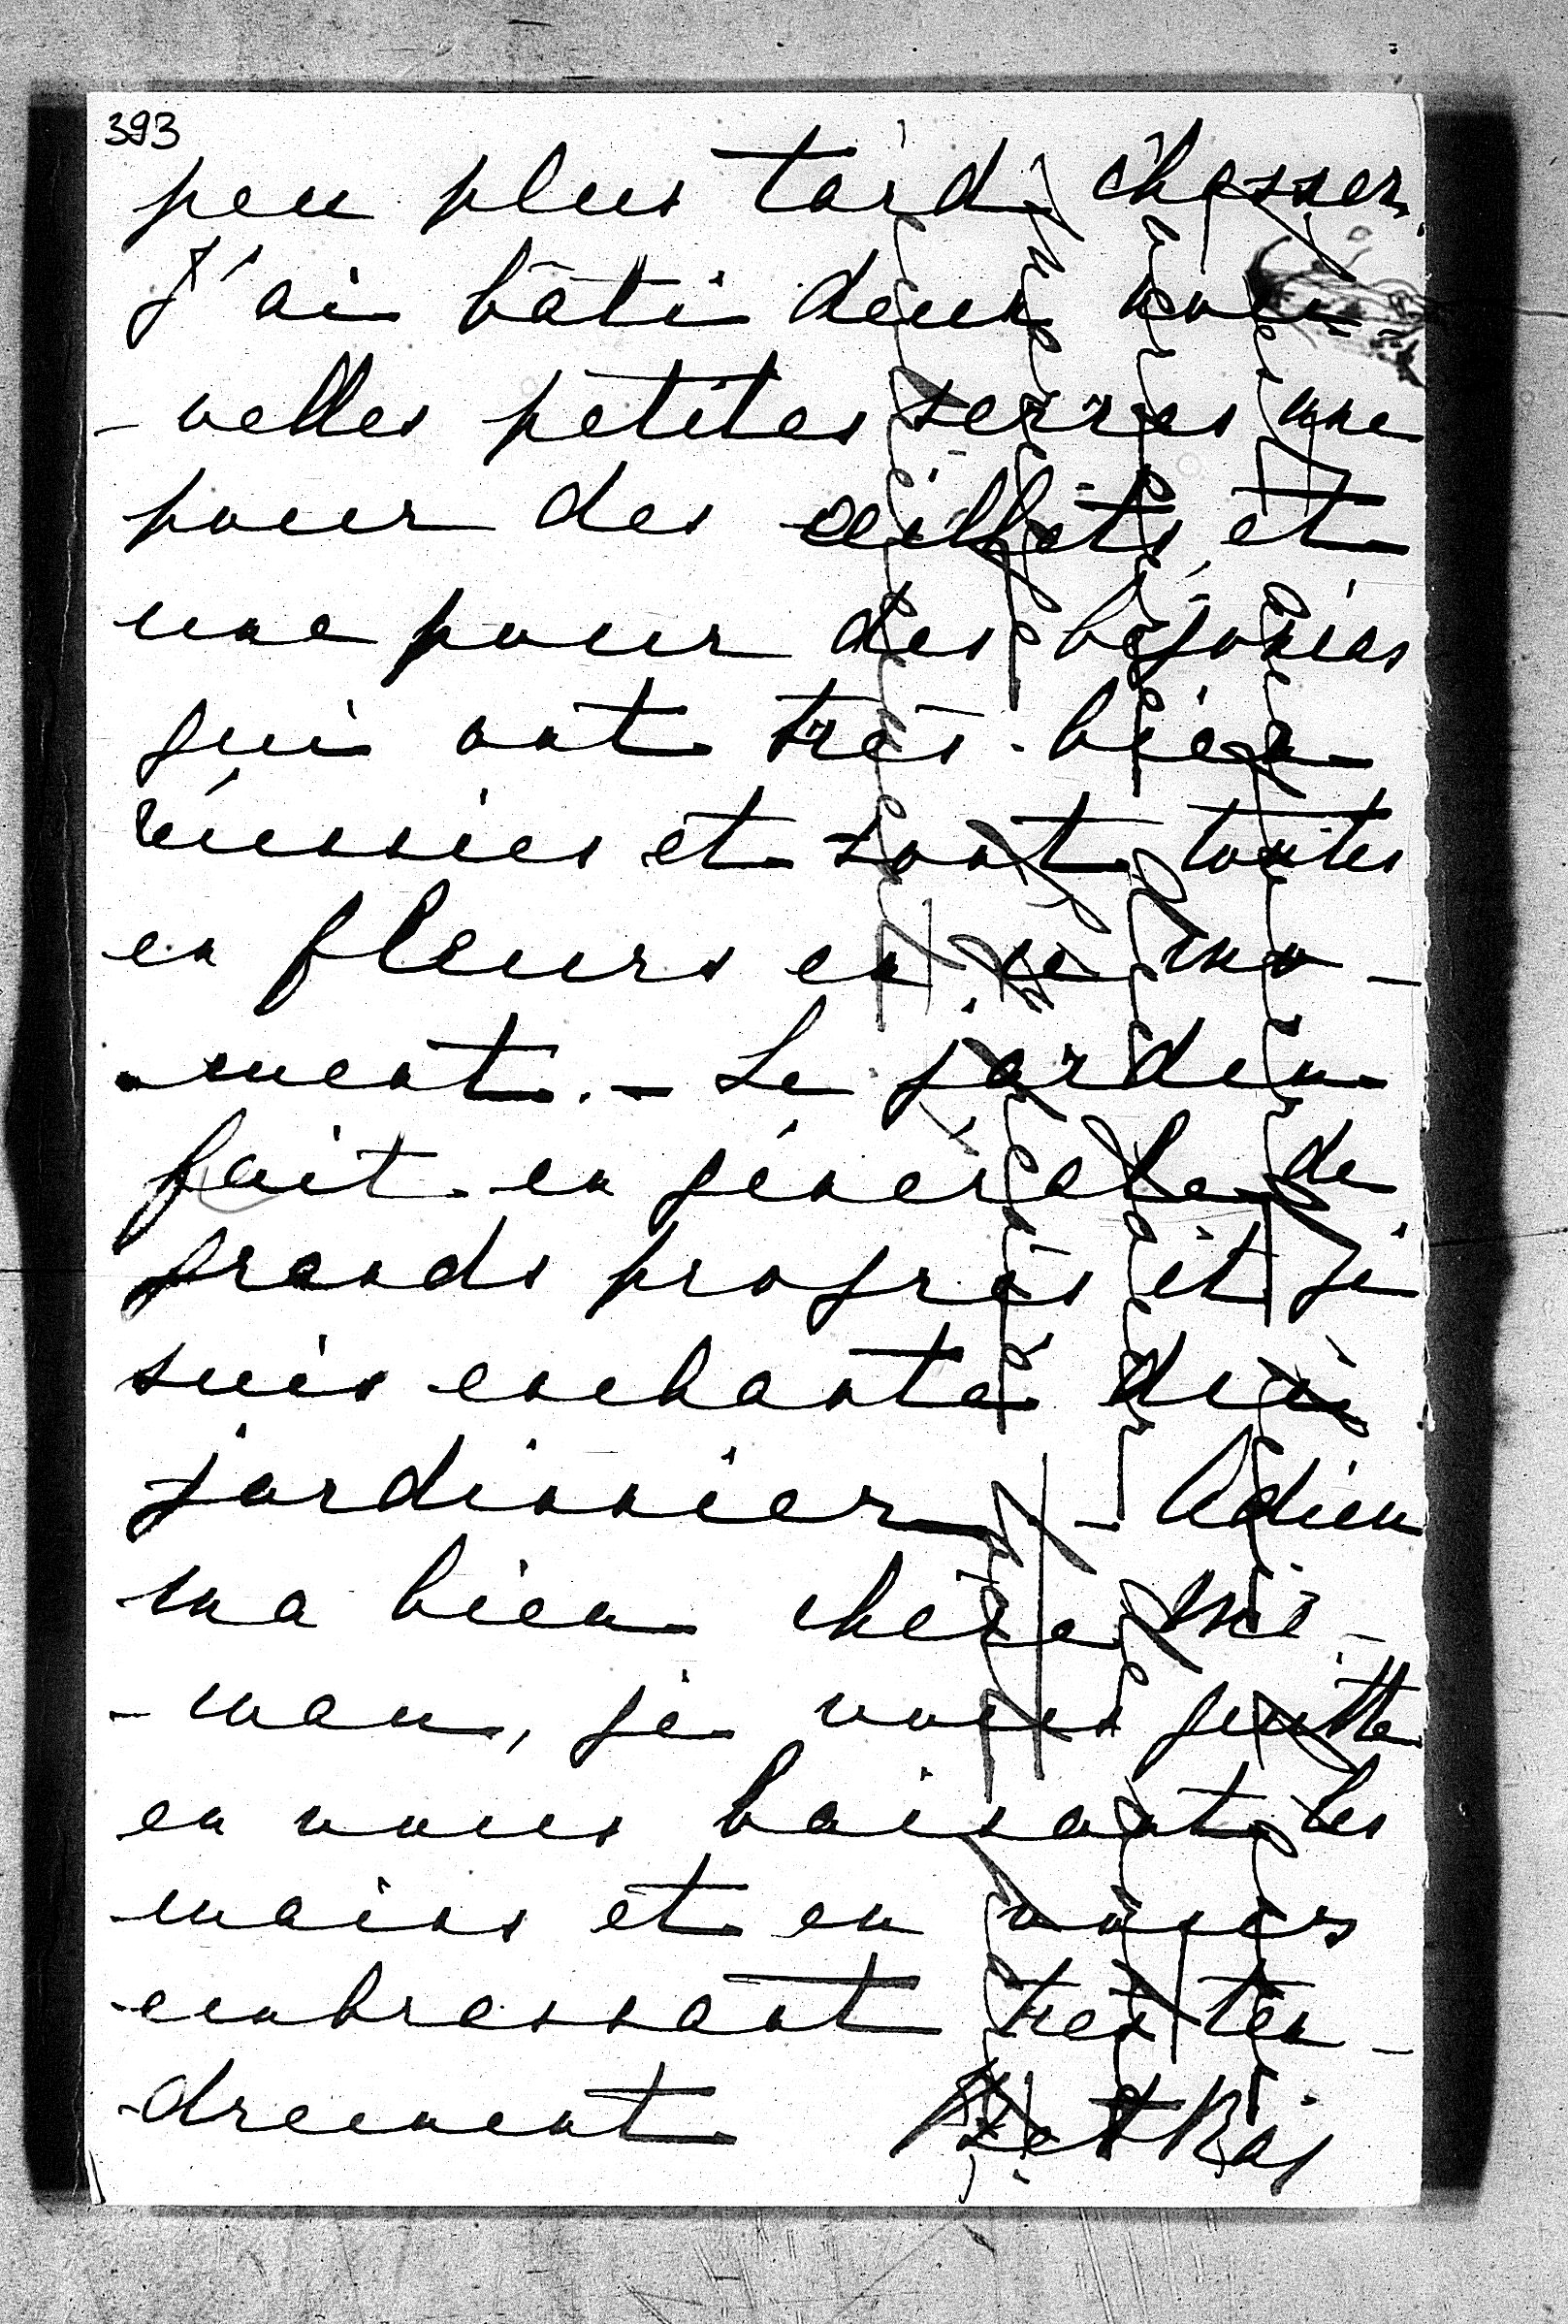 393
peu plus tard chasser.
J'ai bâti deux nou-
-velles petites serres une
pour des œillets et
une pour des bégonias
qui ont très bien
réussies et sont toutes
en fleurs en ce mo-
-ment. - Le jardin
fait en générale de
grands progrès et je
suis enchanté du
jardinnier - Adieu
ma bien chère mè-
-man, je vous quitte
en vous baisant les
mains et en vous
embrassant très ten-
-drement